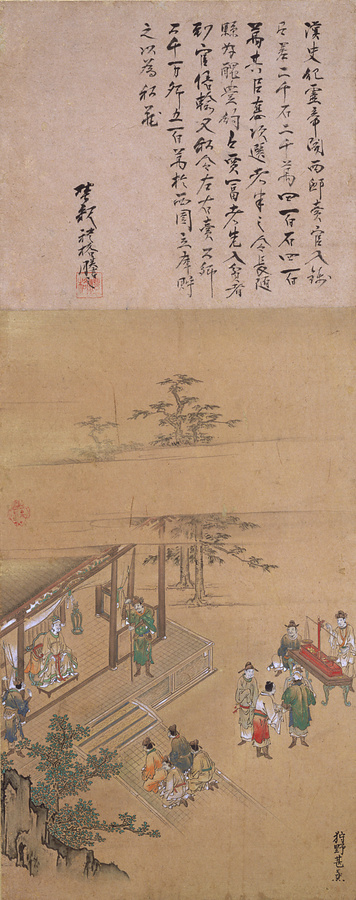 漢史紀靈帝開西邸賣官入錢
各差二千石二千萬四百石四百
萬其以德次選者半之令長隨
縣好醜豐約有賈富者先入貧者
到官倍輸又私令左右賣公卿
公千萬卿五百萬於西園立庫貯
之以為私藏
狩野甚